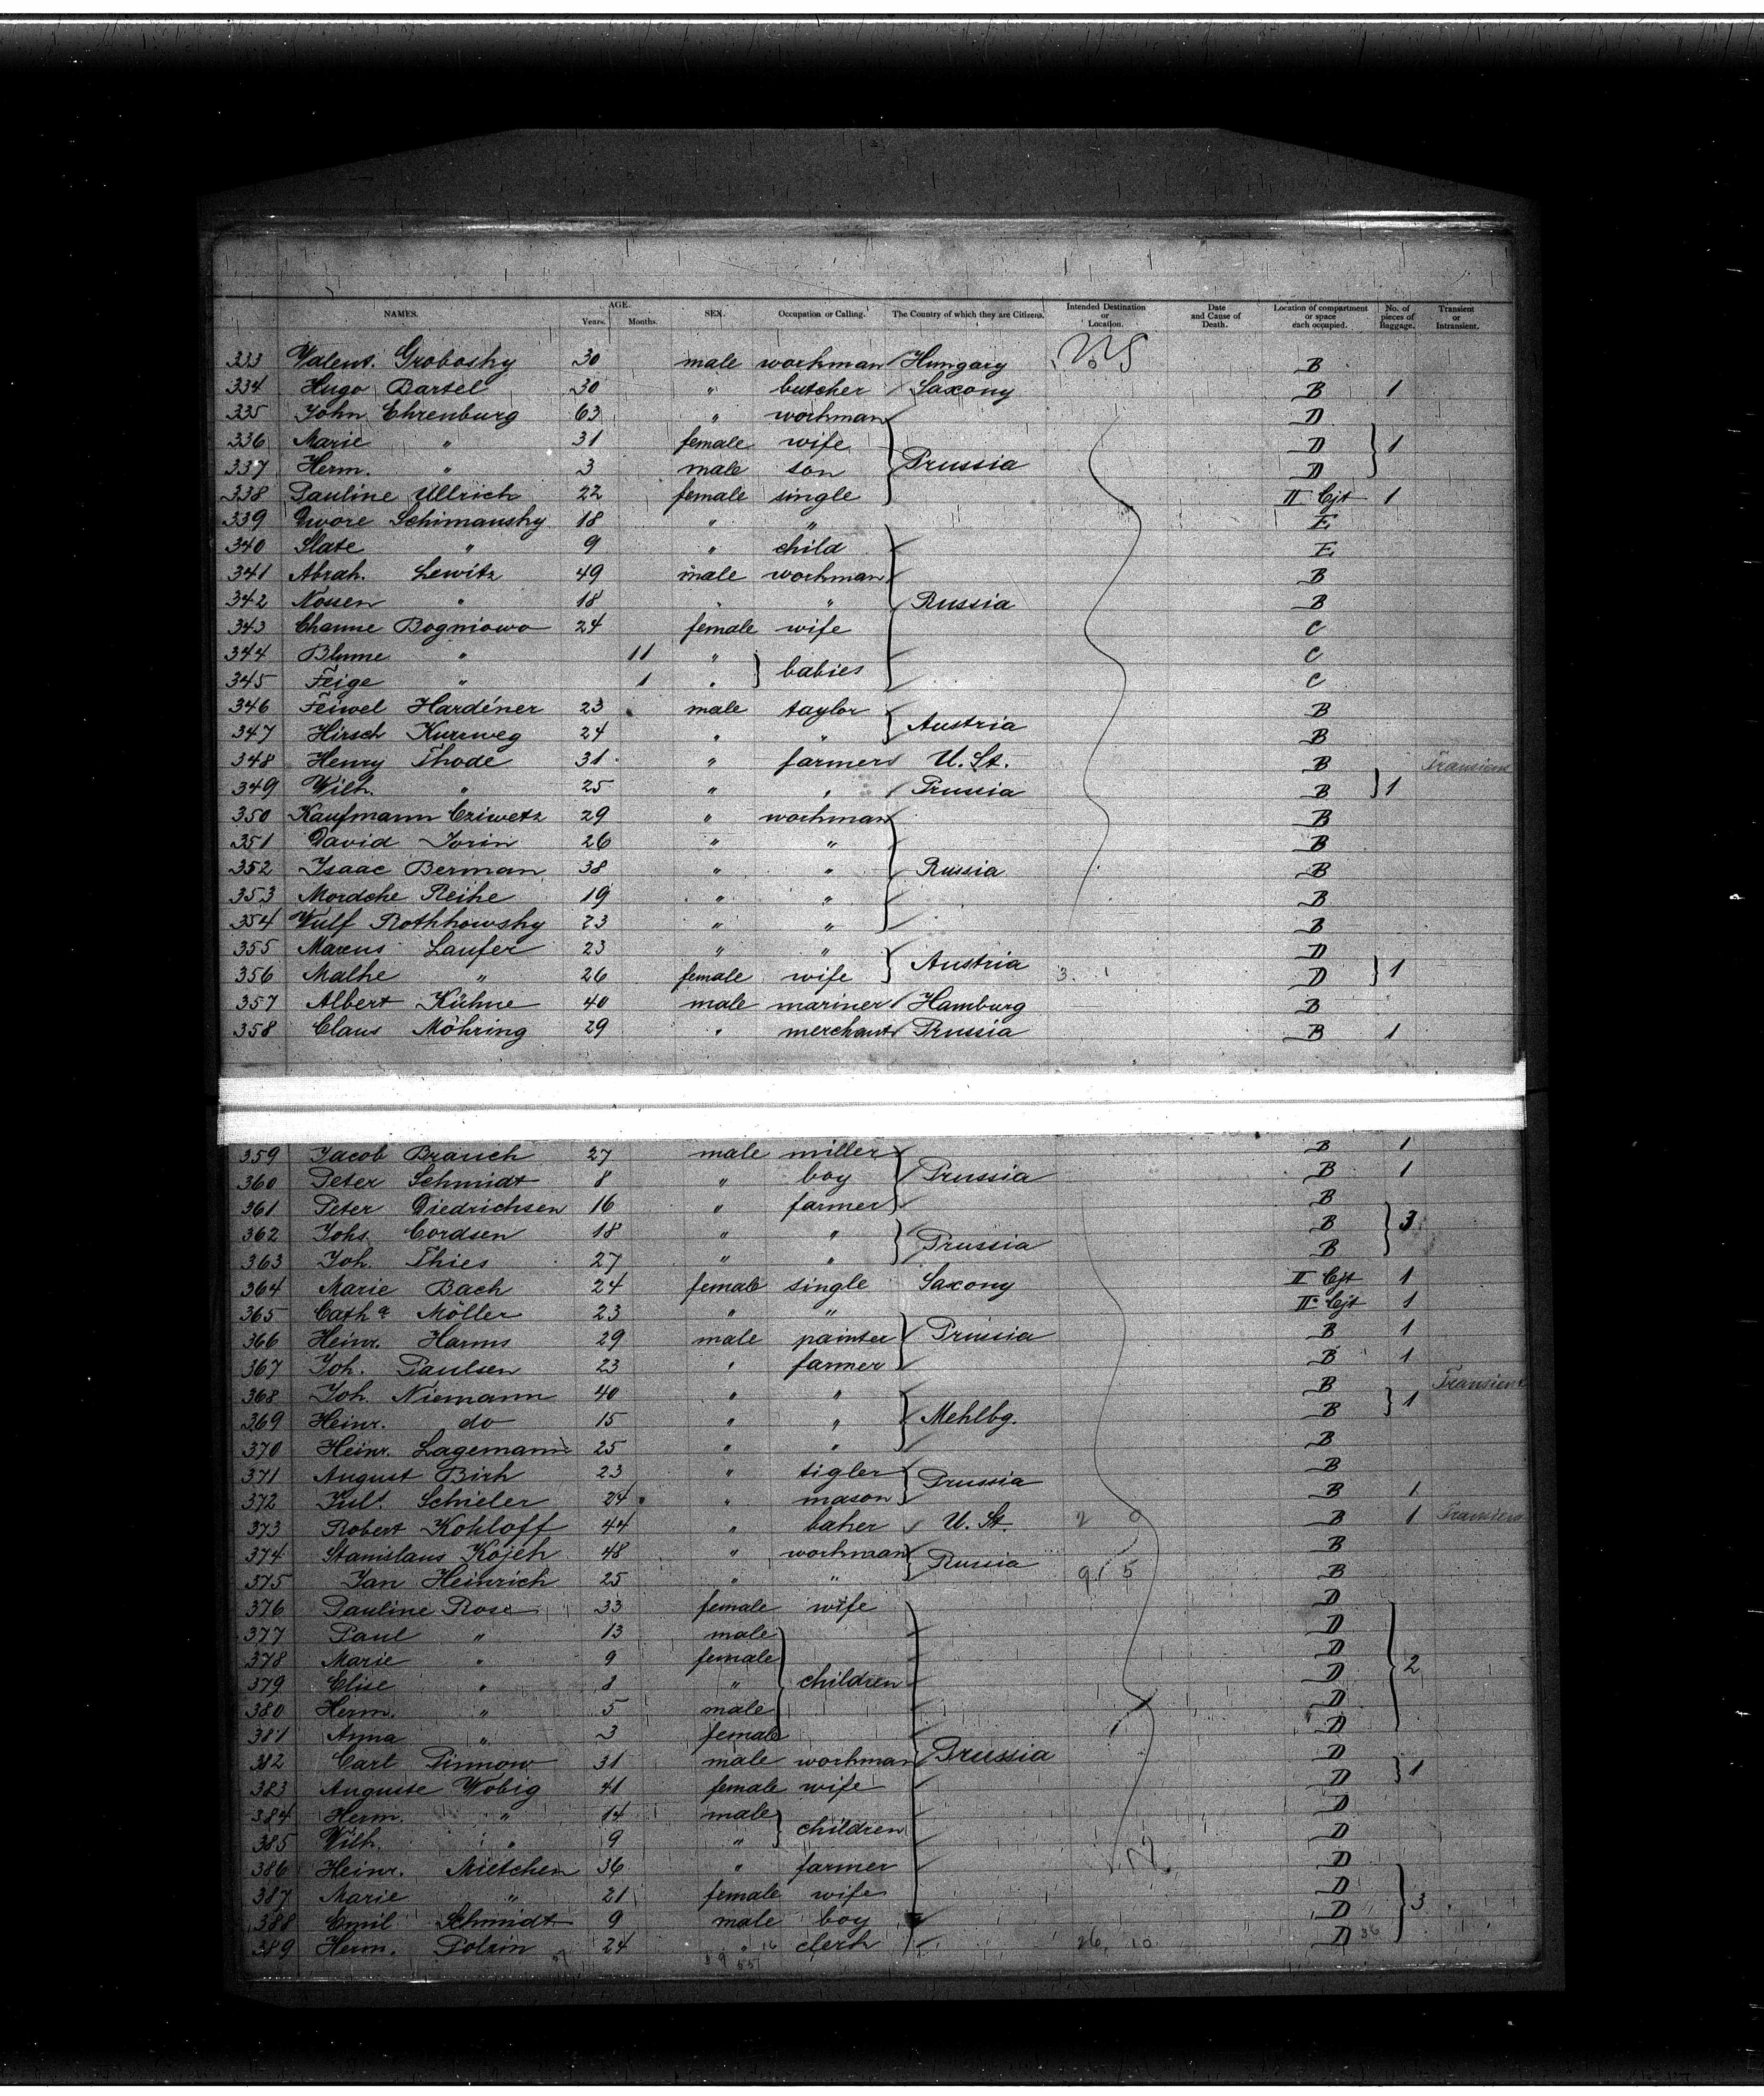 NAMES. AGE. Years. Months. SEX. Occupation or Calling. The Country of which they are Citizens. Intended Destination or Location. Date and Cause of Death. Location of compartment or space each occupied. No. of pieces of Baggage. Transient or Intransient.
333 Valent. Grobosky 30 male workman Hungary US B
334 Hugo Bartel 30 " butcher Saxony B 1
335 John Ehrenburg 63 " workman D
336 Marie " 31 female wife D 1
337 Herm. " 3 male son Prussia D
338 Pauline Ullrich 22 female single II Cjt 1
339 Dwore Schimansky 18 " " E
340 Slate " 9 " child E
341 Abrah. Lewitz 49 male workman B
342 Nossen " 18 " " Russia B
343 Channe Bogniowo 24 female wife C
344 Blume " 11 " babies C
345 Feige " 1 " C
346 Feiwel Hardéner 23 male taylor B
347 Hirsch Kurweg 24 " " Austria B
348 Henry Thode 31 " farmer U. St. B Transient
349 Wilh. " 25 " " Prussia B 1
350 Kaufmann Criwetz 29 " workman B
351 David Jorin 26 " " B
352 Isaac Berman 38 " " Russia B
353 Mordche Reike 19 " " B
354 Wulf Rothkowsky 23 " " B
355 Marcus Laufer 23 " " Austria D
356 Malke " 26 female wife 3 D 1
357 Albert Kühne 40 male mariner Hamburg B
358 Claus Möhring 29 " merchant Prussia B 1
359 Jacob Brarich 27 male miller B 1
360 Peter Schmidt 8 " boy Prussia B 1
361 Peter Diedrichsen 16 " farmer B
362 Johs. Cordsen 18 " " B 3
363 Joh. Thies 27 " " Prussia B
364 Marie Bach 24 female single Saxony II Cjt 1
365 Cath a Möller 23 " " II Cjt 1
366 Heinr. Harms 29 male painter Prussia B 1
367 Joh. Paulsen 23 " farmer B 1
368 Joh. Niemann 40 " " B Transient
369 Heinr. do 15 " " Mehlbg. B 1
370 Heinr. Lagemann 25 " " B
371 August Birk 23 " tigler Prussia B
372 Juls. Schieler 24 " mason B 1
373 Robert Kohloff 44 " baker U. St. 2 9 B 1 Transient
374 Stanislaus Kojek 48 " workman B
375 Jan Heinrich 25 " " Russia 91 5 B
376 Pauline Rose 33 female wife D
377 Paul " 13 male D
378 Marie " 9 female D
379 Elise " 8 " children D 2
380 Herm. " 5 male D
381 Anna " 3 female D
382 Carl Pinnow 31 male workman Prussia D
383 Auguste Wobig 41 female wife D 1
384 Herm. " 14 male D
385 Wilh. " 9 " children D
386 Heinr. Mietchen 36 " farmer D
387 Marie " 21 female wife D
388 Emil Schmidt 9 male boy D 3
389 Herm. Polzin 24 " 16 clerk 26 10 D 36